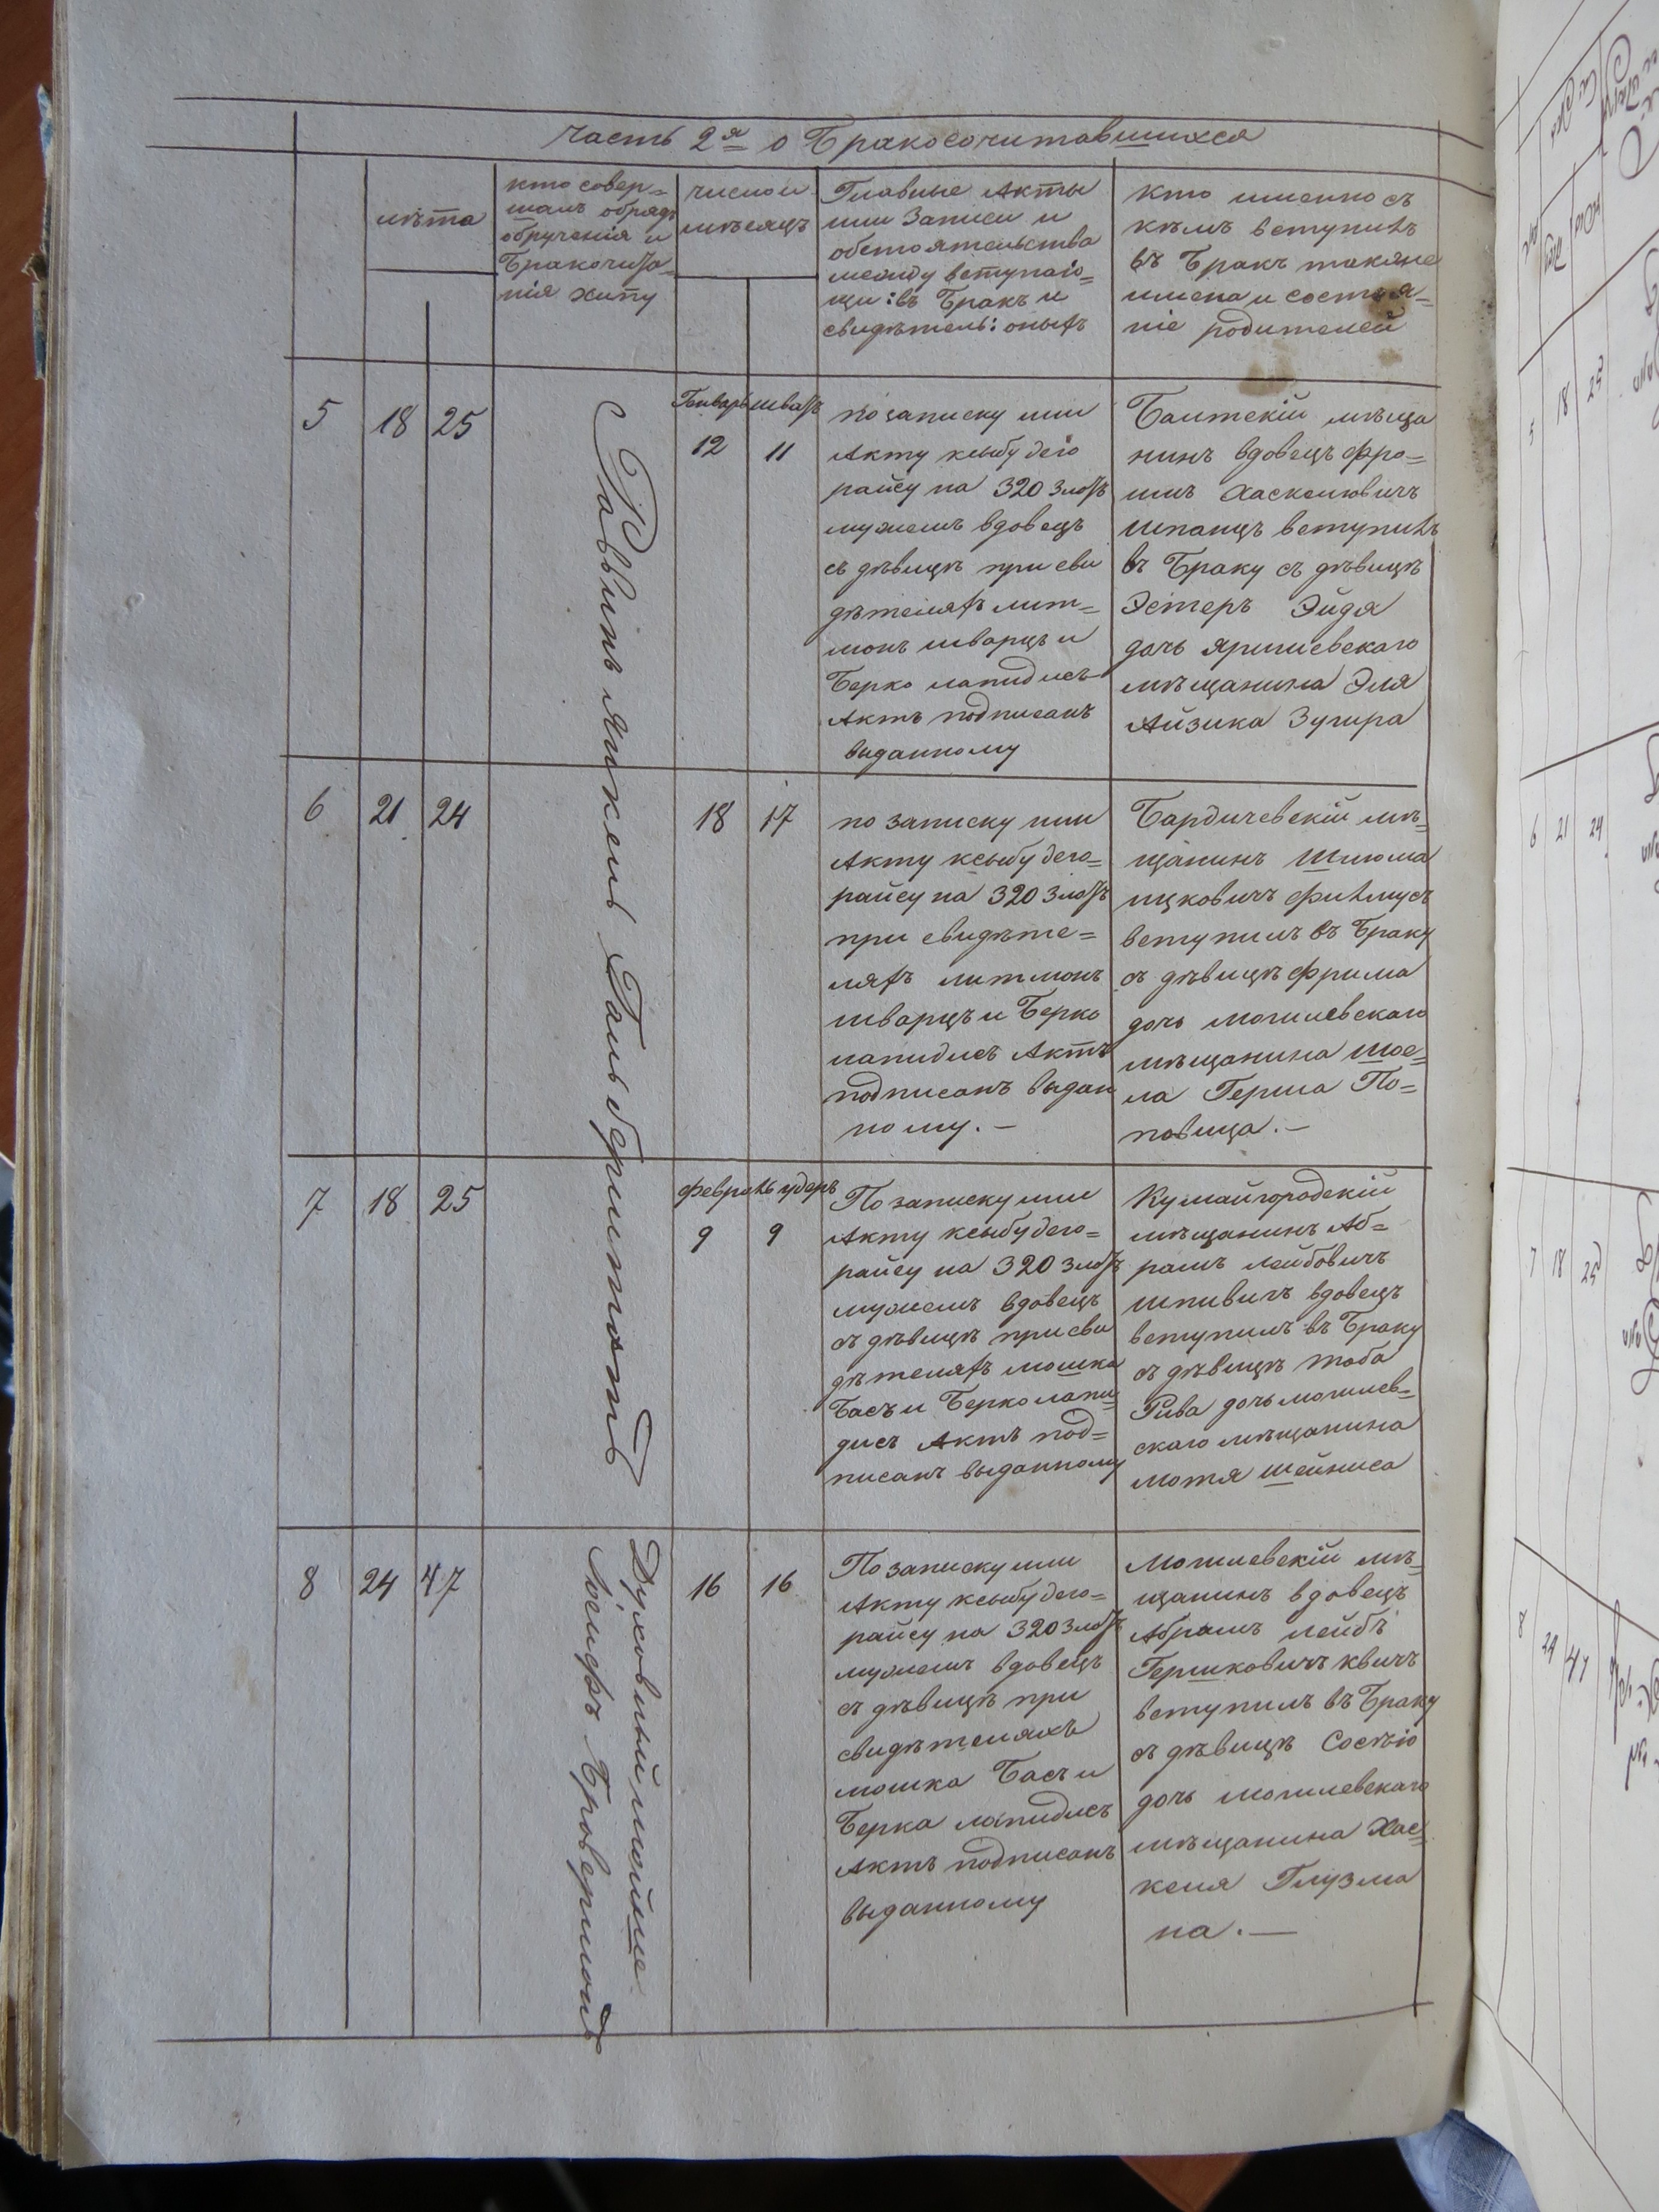 Часть 2я о Бракосочитавшихся
лѣта
кто совер=
шалъ обрядъ
обрученія и
Бракочита=
нія хипу
число и
мѣсяцъ
Главные Акты
или Записи и
обстоятельства
между вступаю=
щи: въ Бракъ и
свидѣтель: оныхъ
Кто именно съ
кѣмъ вступилъ
въ Бракъ такяне
имена и состоя=
ніе родителей
5
18
25
Равинъ Янкель Гальберштатъ
Генварь шватъ
12
11
по записку или
Акту ксыбу дего
райсу на 320 злотъ
мужемъ вдовецъ
съ дѣвицѣ при сви
дѣтеляхъ лит=
монъ шварцъ и
Берко лапидисъ
Актъ подписанъ
выданному
Балтскій мѣща
нинъ вдовецъ Фро=
имъ Хаскелювичъ
Шпанцъ вступилъ
въ Браку съ дѣвицѣ
Эстеръ Эйдя
дочь яришевскаго
мѣщанина Эля
Айзика Зугира
6
21
24
18
17
по записку или
Акту ксыбу дего=
райсу на 320 злотъ
при свидѣте=
ляхъ литмонъ
шварцъ и Берко
лапидисъ Актъ
подписанъ выдан
ному. —
Бардичевскій мѣ=
щанинъ Шлюма
ицковичъ Филмусъ
вступилъ въ Браку
съ дѣвицѣ Фрима
дочь могилевскаго
мѣщанина Шое=
ла Герша По=
повица. —
7
18
25
Февраль удеръ
9
9
По записку или
Акту ксыбу дего=
райсу на 320 злотъ
мужемъ вдовецъ
съ дѣвицѣ при сви
дѣтеляхъ мошка
Басъ и Берко лапи=
дисъ Актъ под=
писанъ выданному
Кумайгородскій
мѣщанинъ Аб=
рамъ лейбовичъ
шпивичъ вдовецъ
вступилъ въ Браку
съ дѣвицѣ тоба
Рива дочь могилев=
скаго мѣщанина
мотя Шейниса
8
24
47
Духовный мойше
Іосифъ Броверманъ
16
16
По записку или
Акту ксыбу дего=
райсу на 320 злотъ
мужемъ вдовецъ
съ дѣвицѣ при
свидѣтеляхъ
мошка Басъ и
Берка лапидисъ
Актъ подписанъ
выданному
Могилевскій мѣ=
щанинъ вдовецъ
Абрамъ лейбъ
Гершковичъ квичъ
вступилъ въ Браку
съ дѣвицѣ Сосѣю
дочь могилевскаго
мѣщанина Хас=
келя Глузма
на. —
5
18
25
6
21
24
7
18
25
8
24
47